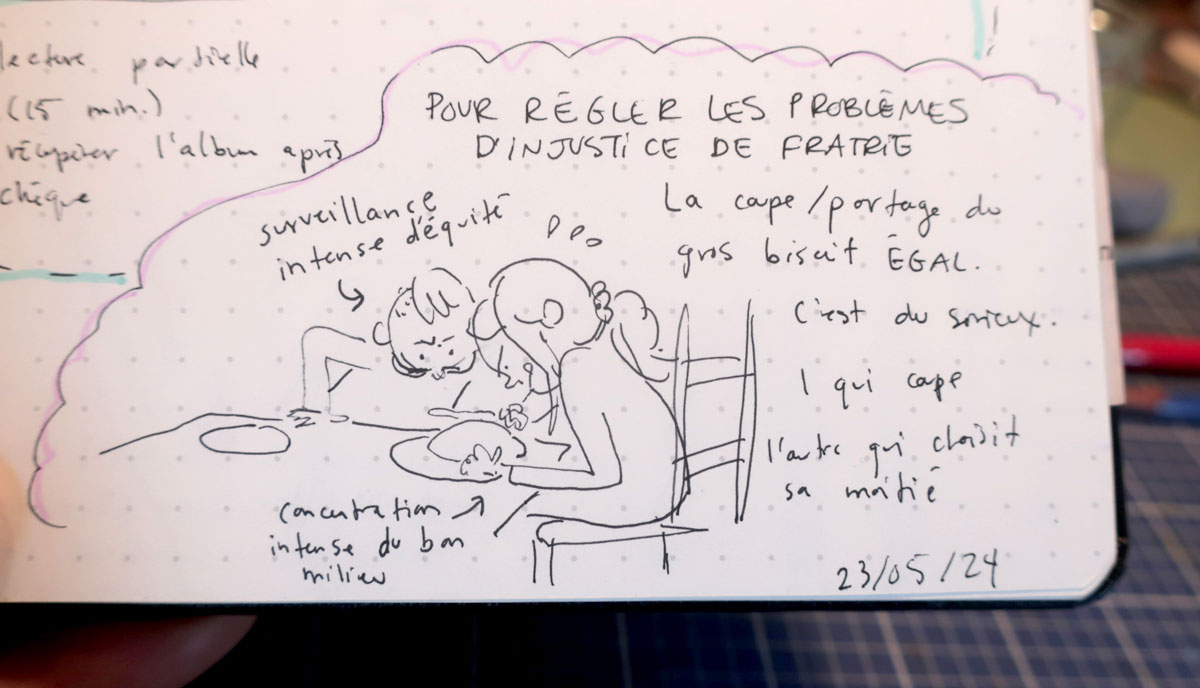 lecture partielle
(15 min.)
récupérer l'album après
chèque
POUR RÉGLER LES PROBLÈMES
D'INJUSTICE DE FRATRIE
surveillance
intense d'équité
La coupe/partage du
gros biscuit ÉGAL.
C'est du sérieux.
1 qui coupe
l'autre qui choisit
sa moitié
concentration
intense du bon
milieu
23/05/24